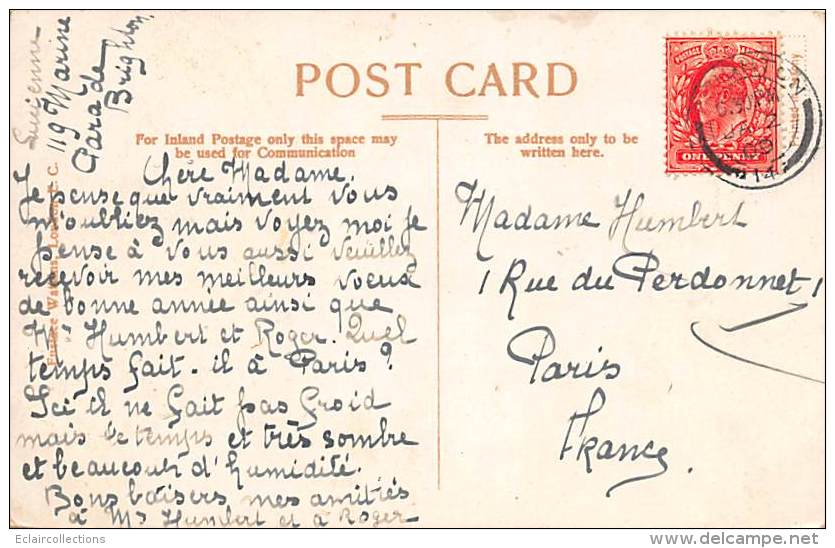 POST CARD
For Inland Postage only this space may
be used for Communication
The address only to be
written here.
Lucienne
119 Marine
Parade
Brighton
Chère Madame.
Je pense que vraiment vous
m'oubliez mais voyez moi je
pense à vous aussi veuillez
recevoir mes meilleurs voeux
de bonne année ainsi que
Mr Humbert et Roger. Quel
temps fait-il à Paris?
Ici il ne fait pas froid
mais le temps et très sombre
et beaucoup d'humidité.
Bons baisers mes amitiés
à Mr Humbert et à Roger
Madame Humbert
1 Rue du Perdonnet 1
Paris
France
POSTAGE
ONE PENNY
6.30 PM
JA
09
914
London, E. C.
Eclaircollections
www.delcampe.net